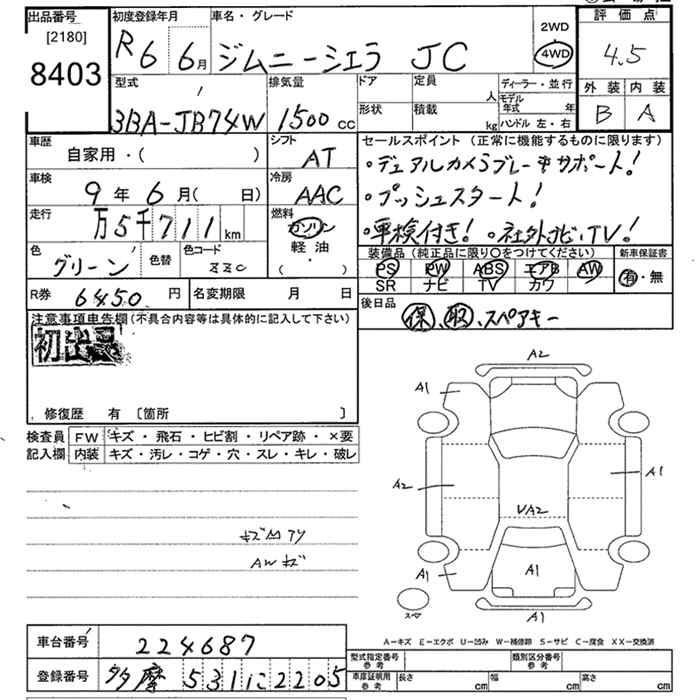 出品番号
[2180]
8403
初度登録年月
R6 6月
車名・グレード
ジムニーシエラ JC
2WD
4WD
評価点
4.5
外装 内装
B A
型式
3BA-JB74W
排気量
1500 cc
ドア
形状
定員
人
積載
kg
ディーラー・並行
モデル年式 年
ハンドル 左・右
車歴
自家用・( )
シフト
AT
セールスポイント (正常に機能するものに限ります)
・デュアルカメラブレーキサポート!
・プッシュスタート!
・車検付き! ・社外ナビ、TV!
車検
9年6月( 日)
冷房
AAC
走行
万5千711 km
燃料
ガソリン
軽油
( )
色
グリーン
色替
色コード
ZZC
装備品 (純正品に限り○をつけてください)
PS PW ABS エアB AW
SR ナビ TV カワ
新車保証書
有・無
R券 6450 円
名変期限 月 日
後日品
保、取、スペアキー
注意事項申告欄(不具合内容等は具体的に記入して下さい)
初出品
修復歴 有 〔箇所 〕
検査員 FW キズ・飛石・ヒビ割・リペア跡・×要
記入欄 内装 キズ・汚レ・コゲ・穴・スレ・キレ・破レ
AWキズ
A2
A1
A2
A1
VA2
A1
A1
A1
スペア
A-キズ E-エクボ U-凹み W-補修跡 S-サビ C-腐食 XX-交換済
車台番号
224687
登録番号
多摩 531 に 2205
型式指定番号
参考
類別区分番号
参考
車庫証明用
参考
長さ cm
幅 cm
高さ cm